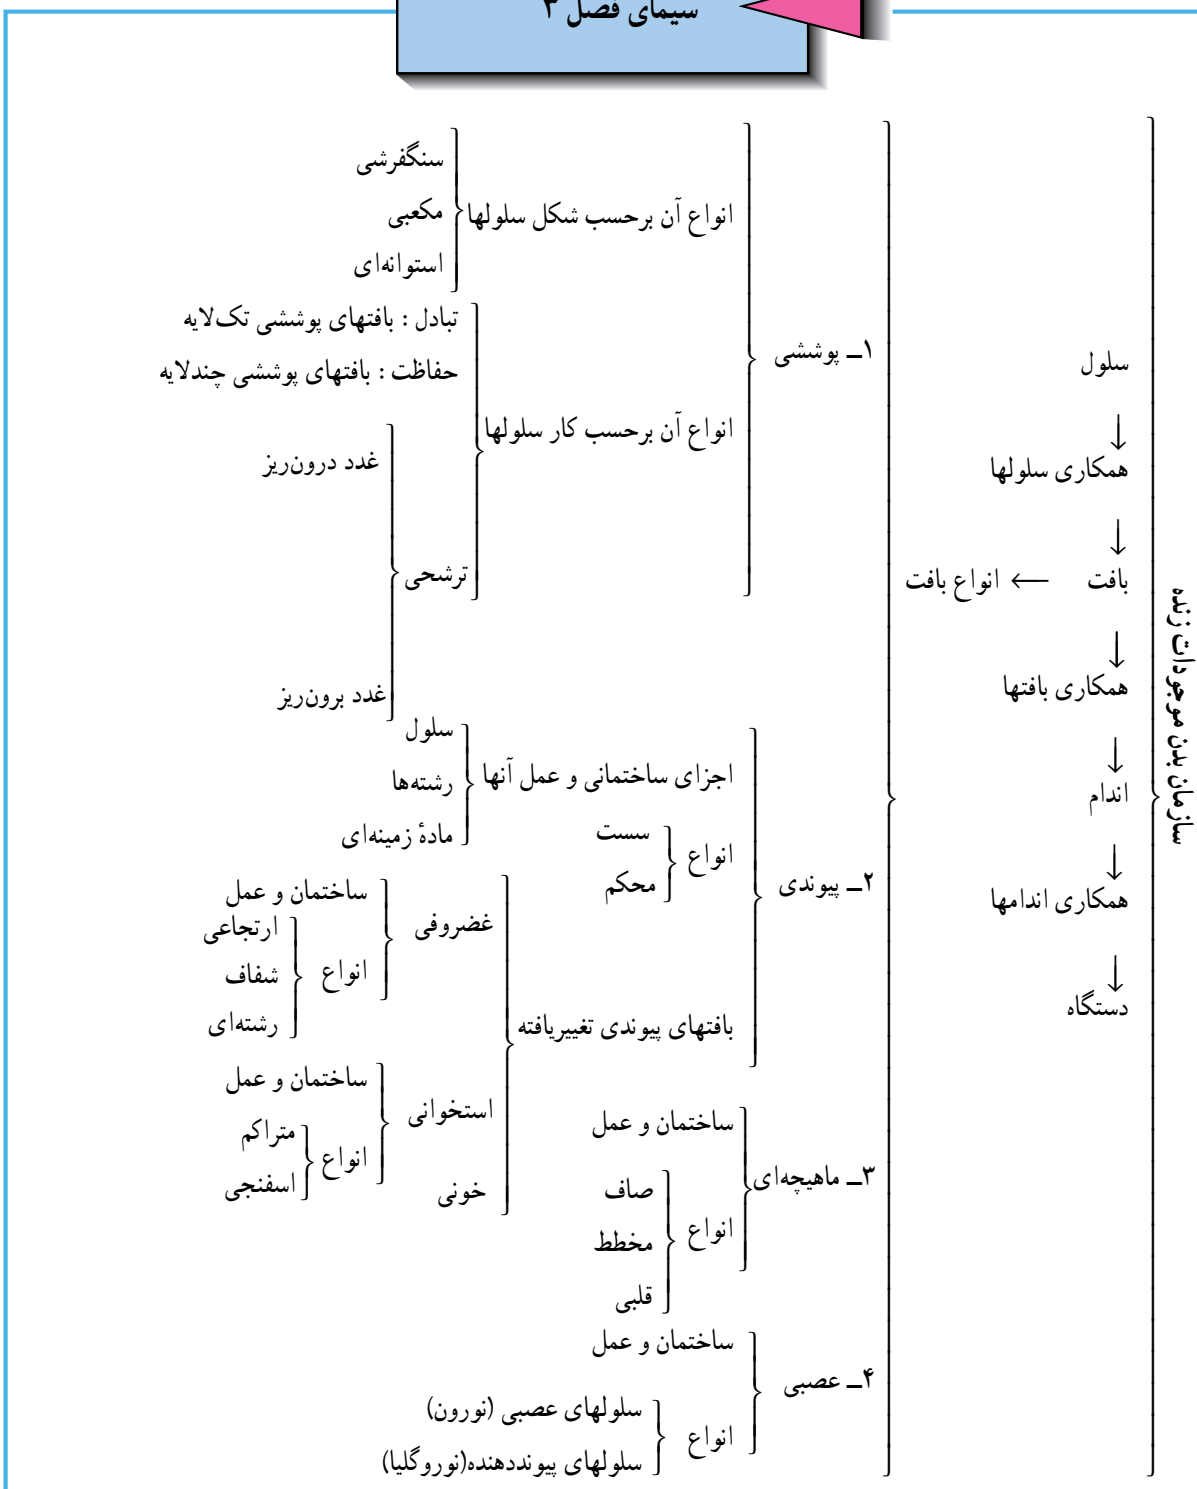 سیمای فصل ۳
سازمان بدن موجودات زنده
سلول
↓
همکاری سلولها
↓
بافت ← انواع بافت
↓
همکاری بافتها
↓
اندام
↓
همکاری اندامها
↓
دستگاه
۱ــ پوششی
انواع آن برحسب شکل سلولها
سنگفرشی
مکعبی
استوانه‌ای
انواع آن برحسب کار سلولها
تبادل : بافتهای پوششی تک‌لایه
حفاظت : بافتهای پوششی چندلایه
ترشحی
غدد درون‌ریز
غدد برون‌ریز
۲ــ پیوندی
اجزای ساختمانی و عمل آنها
سلول
رشته‌ها
مادهٔ زمینه‌ای
انواع
سست
محکم
بافتهای پیوندی تغییریافته
غضروفی
ساختمان و عمل
انواع
ارتجاعی
شفاف
رشته‌ای
استخوانی
ساختمان و عمل
انواع
متراکم
اسفنجی
خونی
۳ــ ماهیچه‌ای
ساختمان و عمل
انواع
صاف
مخطط
قلبی
۴ــ عصبی
ساختمان و عمل
انواع
سلولهای عصبی (نورون)
سلولهای پیونددهنده(نوروگلیا)